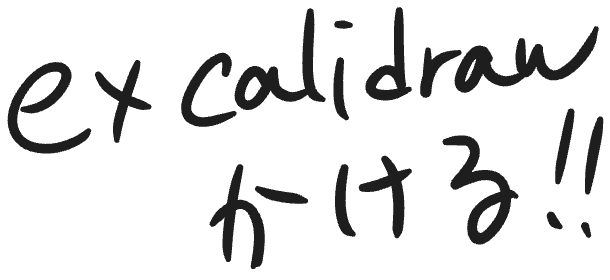 excalidraw
かける!!